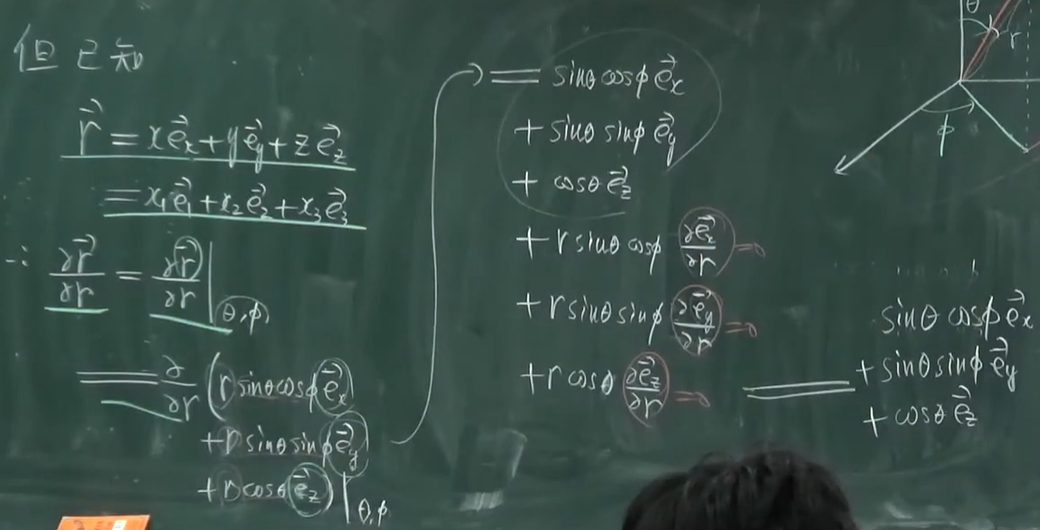 但已知
$\vec{r} = x\vec{e}_x + y\vec{e}_y + z\vec{e}_z$
$= x_1\vec{e}_1 + x_2\vec{e}_2 + x_3\vec{e}_3$
$\therefore \frac{\partial \vec{r}}{\partial r} = \left.\frac{\partial \vec{r}}{\partial r}\right|_{\theta,\phi}$
$= \frac{\partial}{\partial r}(r \sin\theta \cos\phi \, \vec{e}_x$
$+ r \sin\theta \sin\phi \, \vec{e}_y$
$+ r \cos\theta \, \vec{e}_z)|_{\theta,\phi}$
$= \sin\theta \cos\phi \, \vec{e}_x$
$+ \sin\theta \sin\phi \, \vec{e}_y$
$+ \cos\theta \, \vec{e}_z$
$+ r \sin\theta \cos\phi \, \frac{\partial \vec{e}_x}{\partial r} = 0$
$+ r \sin\theta \sin\phi \, \frac{\partial \vec{e}_y}{\partial r} = 0$
$+ r \cos\theta \, \frac{\partial \vec{e}_z}{\partial r} = 0$
θ
r
ϕ
$\sin\theta \cos\phi \, \vec{e}_x$
$= + \sin\theta \sin\phi \, \vec{e}_y$
$+ \cos\theta \, \vec{e}_z$